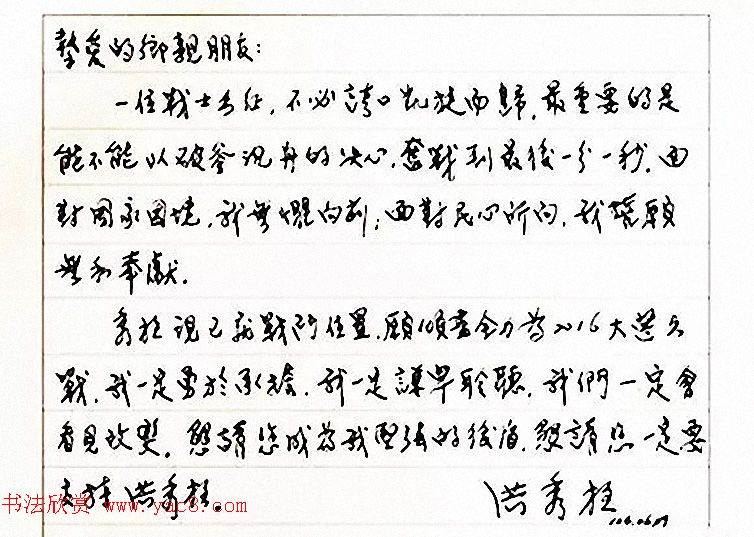 摯愛的鄉親朋友：
一位戰士出征，不必誇口凱旋而歸，最重要的是
能不能以破釜沉舟的決心，奮戰到最後一分一秒。面
對國家困境，我無懼向前；面對民心所向，我懷願
無私奉獻。
秀柱現已就戰鬥位置，願傾盡全力為2016大選之
戰，我一定勇於承擔，我一定謙卑聆聽，我們一定會
看見改變。懇請您成為我堅強的後盾，懇請您一定要
支持洪秀柱。
洪秀柱
书法欣赏 www.yac8.com